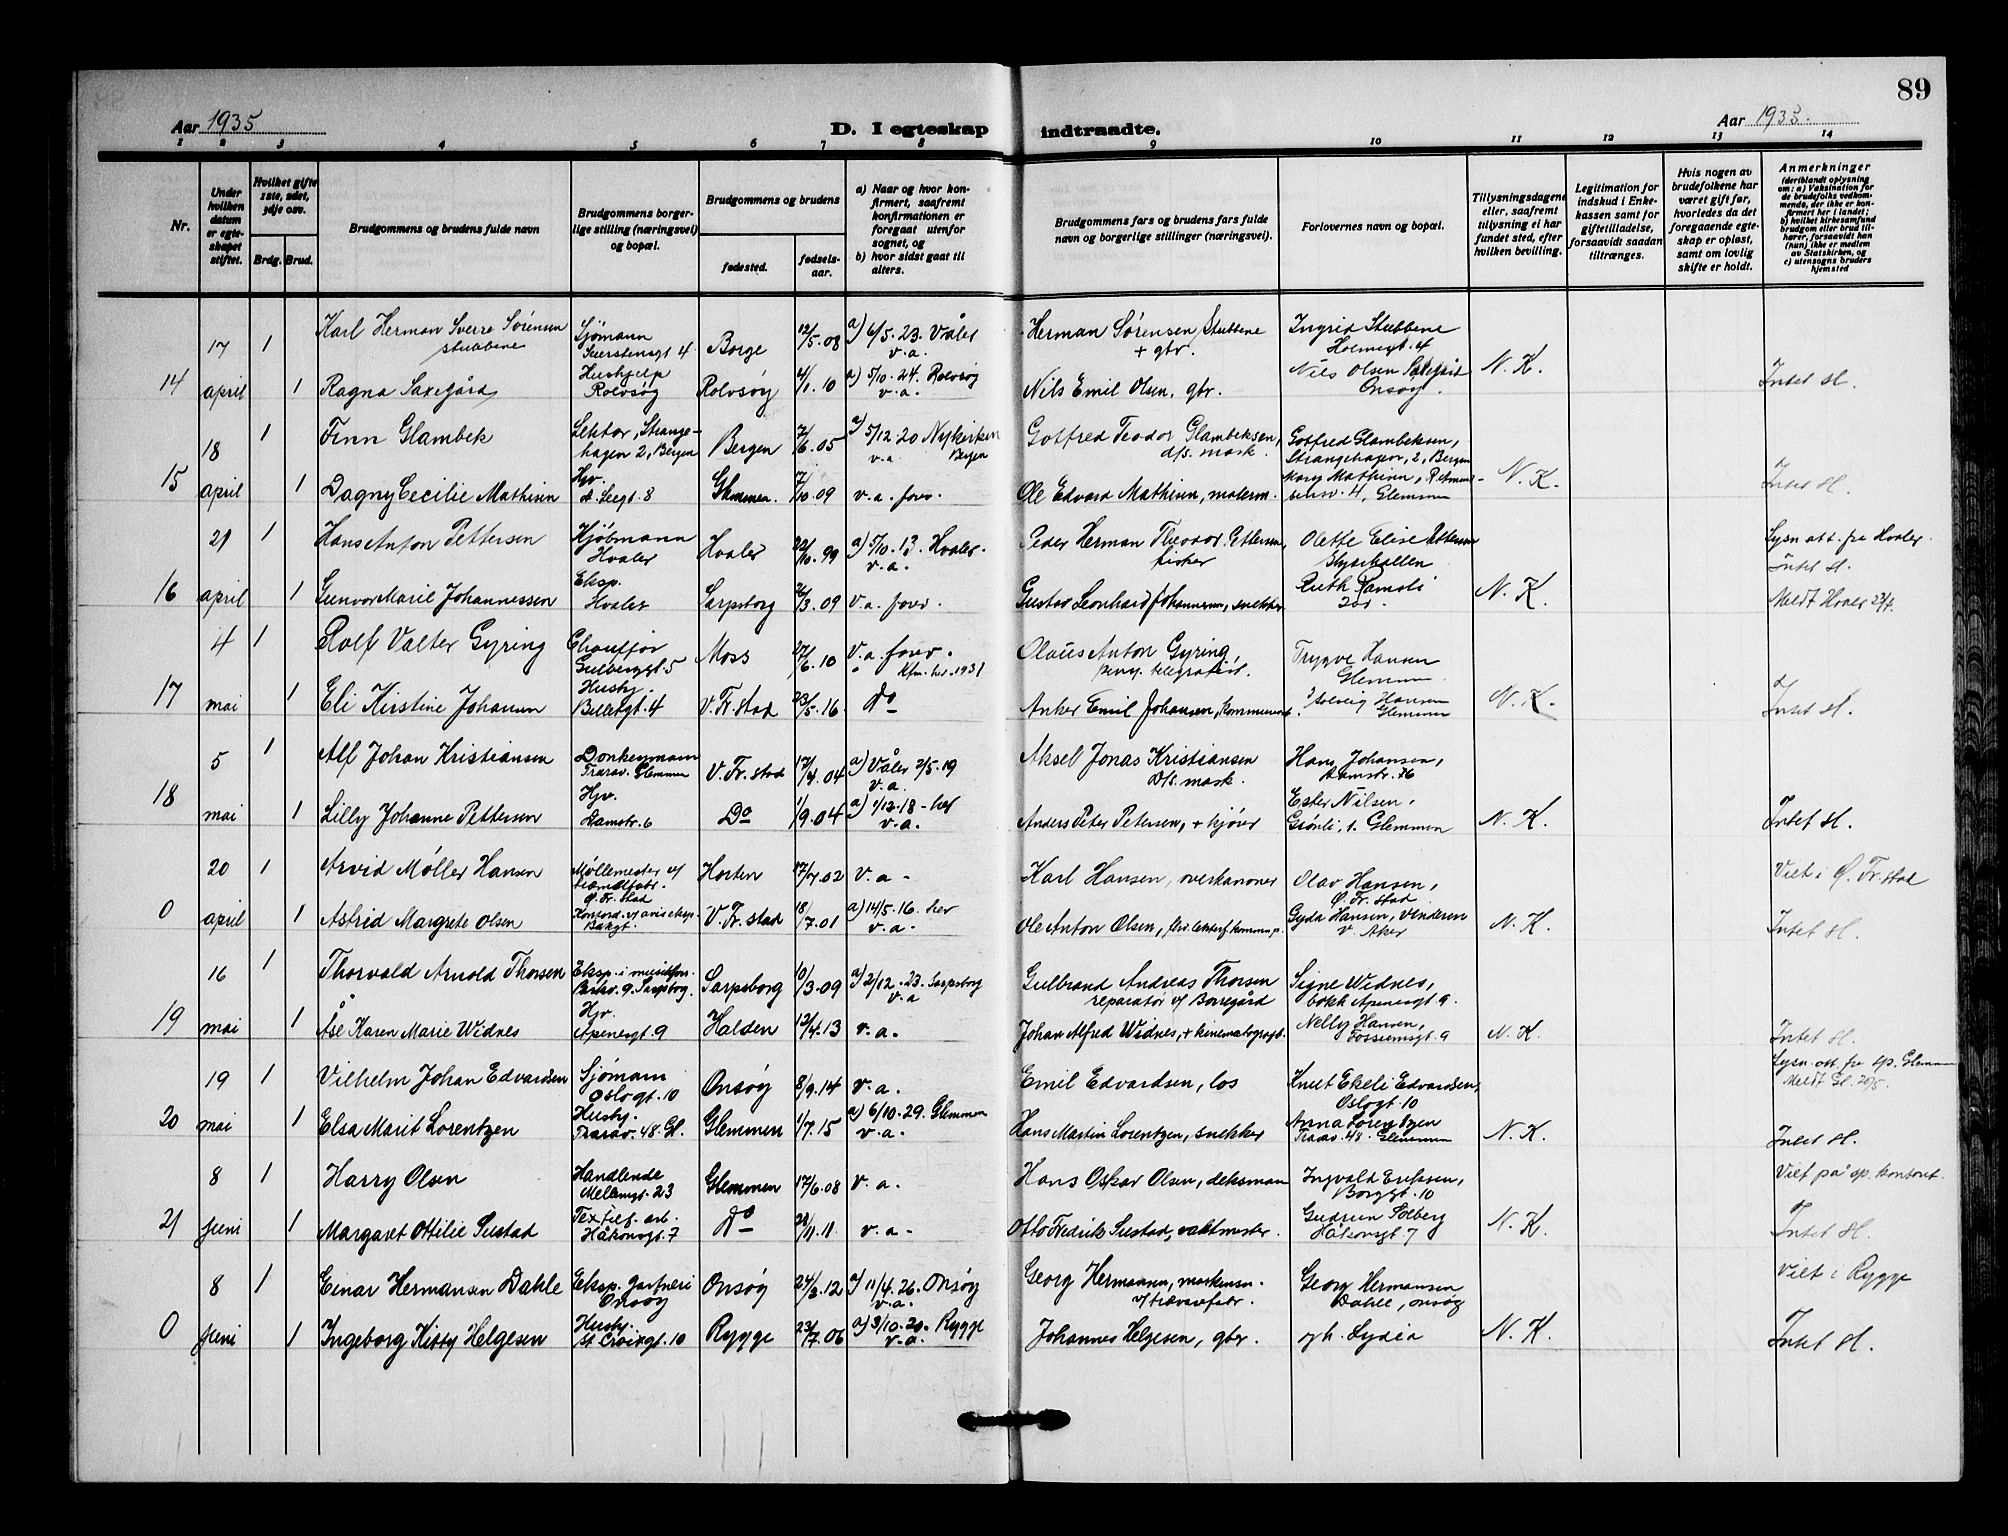 89
Aar 1935
D. I egteskap indtraadte.
Aar 1935.
1 2 3 4 5 6 7 8 9 10 11 12 13 14
Nr.
Under hvilken datum er egteskapet stiftet.
Hvilket gifte 1ste, 2det, 3dje osv.
Brdg. Brud.
Brudgommens og brudens fulde navn
Brudgommens borgerlige stilling (næringsvei) og bopæl.
Brudgommens og brudens
fødested.
fødselsaar.
a) Naar og hvor konfirmert, saafremt konfirmationen er foregaat utenfor sognet, og
b) hvor sidst gaat til alters.
Brudgommens fars og brudens fars fulde navn og borgerlige stillinger (næringsvei).
Forlovernes navn og bopæl.
Tillysningsdagene eller, saafremt tillysning ei har fundet sted, efter hvilken bevilling.
Legitimation for indskud i Enkekassen samt for giftetilladelse, forsaavidt saadan tiltrænges.
Hvis nogen av brudefolkene har været gift før, hvorledes da det foregaaende egteskap er opløst, samt om lovlig skifte er holdt.
Anmerkninger
(deriblandt oplysning om: a) Vaksination for de brudefolks vedkommende, der ikke er konfirmert her i landet; b) hvilket kirkesamfund brudgom eller brud tilhører, forsaavidt han (hun) ikke er medlem av Statskirken, og c) utensogns bruders hjemsted
17 1 Karl Herman Sverre Sørensen Stubbene Sjømann 4 Borge 12/5.08 a) 6/5.23. Våler v.a. Herman Sørensen Stubbene + gbr. Ingrid Stubbene Holmegt. 4
14 april 1 Ragna Saxegård Hushjelp Rolvsøy Rolvsøy 4/1.10 a) 5/10.24. Rolvsøy v.a. Nils Emil Olsen, gbr. Nils Olsen Saxegård Onsøy. N. K. Intet H.
18 1 Finn Glambek Lektor, Strangehagen 2, Bergen Bergen 7/6.05 a) 5/12.20 Nykirken Bergen v.a. Gotfred Teodor Glambeksen, d/s. mask. Gotfred Glambeksen, Strangehagen, 2, Bergen
15 april 1 Dagny Cecilie Mathisen Hjv. 8 Glemmen. 7/10.09 v.a. forr. Ole Edvard Mathisen, malerm. Mary Mathisen, 4, Glemmen N. K. Intet H.
21 1 Hans Anton Pettersen Kjøbmann Hvaler Hvaler 22/10.99 a) 5/10.13. Hvaler. v.a. Peder Herman Theodor Pettersen, fisker Olette Elise Pettersen Lysn att. fra Hvaler.
16 april 1 Gunvor Marie Johannessen Eksp. Hvaler Sarpsborg 26/3.09 v.a. forr. Gustav Leonhard Johannessen, snekker Ruth N. K. Intet H. Meldt Hvaler 23/4.
4 1 Rolf Valter Gyring Chauffør Gulbergt. 5 Moss 27/6.10 v.a. forr. Kfm. her. 1931 Olaüs Anton Gyring, Trygve Hansen Glemmen
17 mai 1 Eli Kirstine Johansen Hushj. Billetgt. 4 V. Fr. stad 23/5.16 Do Anker Emil Johansen, Solveig Hansen Glemmen N. K. Intet H.
5 1 Alf Johan Kristiansen Donkeymann Trarav. Glemmen V. Fr. stad 17/4.04 a) Våler 2/5.19 v.a. Aksel Jonas Kristiansen D/s. mask. Hans Johansen, Damstr. 76
18 mai 1 Lilly Johanne Pettersen Hjv. Damstr. 6 Do 1/9.04 a) 1/12.18 - her v.a. Anders Peter Petersen, + kjører Ester Nilsen, Grønli, 1. Glemmen N. K. Intet H.
20 1 Arvid Møller Hansen Møllemester v/ Ø. Fr. stad Horten 17/7.02 v.a. Karl Hansen, overkanoner Olav Hansen, Ø. Fr. stad Viet i Ø. Fr. stad
0 april 1 Astrid Margrete Olsen Kontord. v/ Bakgt. V. Fr. stad 18/7.01 a) 14/5.16. her v.a. Ole Anton Olsen, Gyda Hansen, Vinderen V. Aker N. K. Intet H.
16 1 Thorvald Arnold Thorsen Eksp. i 9. Sarpsbog. Sarpsborg 10/3.09 a) 2/12.23. Sarpsborg v.a Gulbrand Andreas Thorsen reparatør v/ Borregård Signe Widnes, bokh Apenesgt 9.
19 mai 1 Åse Karen Marie Widnes Hjv. Apenesgt. 9 Halden 12/4.13 v.a. Johan Alfred Widnes, + kinematografb. Nelly Hansen, 9 N. K. Intet H.
19 1 Vilhelm Johan Edvardsen Sjømann Oslogt. 10 Onsøy 8/9.14 v.a. Emil Edvardsen, los Knut Ekeli Edvardsen, Oslogt. 10 Lysn att. fra sp. Glemmen Meldt Gl. 20/5.
20 mai 1 Elsa Marit Lorentzen Hushj. Trarav. 48. Gl. Glemmen 1/7.15 a) 6/10.29. Glemmen v.a. Hans Martin Lorentzen, snekker Anna Lorentzen Trarav. 48. Glemmen N. K. Intet H.
8 1 Harry Olsen Handlende Mellemgt. 23 Glemmen 17/6.08 v.a. Hans Oskar Olsen, deksmann Ingvald Eriksen, Borggt. 10 Viet på sp. kontoret.
21 juni 1 Margaret Ottilie Sustad Textilf. arb. Håkonsgt. 7 Do 28/11.11 v.a. Otto Fredrik Sustad, vaktmester. Gudrun Solberg Håkonsgt. 7 N. K. Intet H.
8 1 Einar Hermansen Dahle Eksp. gartneri Onsøy Onsøy 24/3.12 a) 11/4.26. Onsøy v.a. Georg Hermansen, v/ trævarefabr. Georg Hermansen Dahle, Onsøy Viet i Rygge
0 juni 1 Ingeborg Kitty Helgesen Hushj. St. Croixgt. 10 Rygge 23/7.06 a) 3/10.20. Rygge v.a. Johannes Helgesen, gbr. og h. Lydia N. K. Intet H.